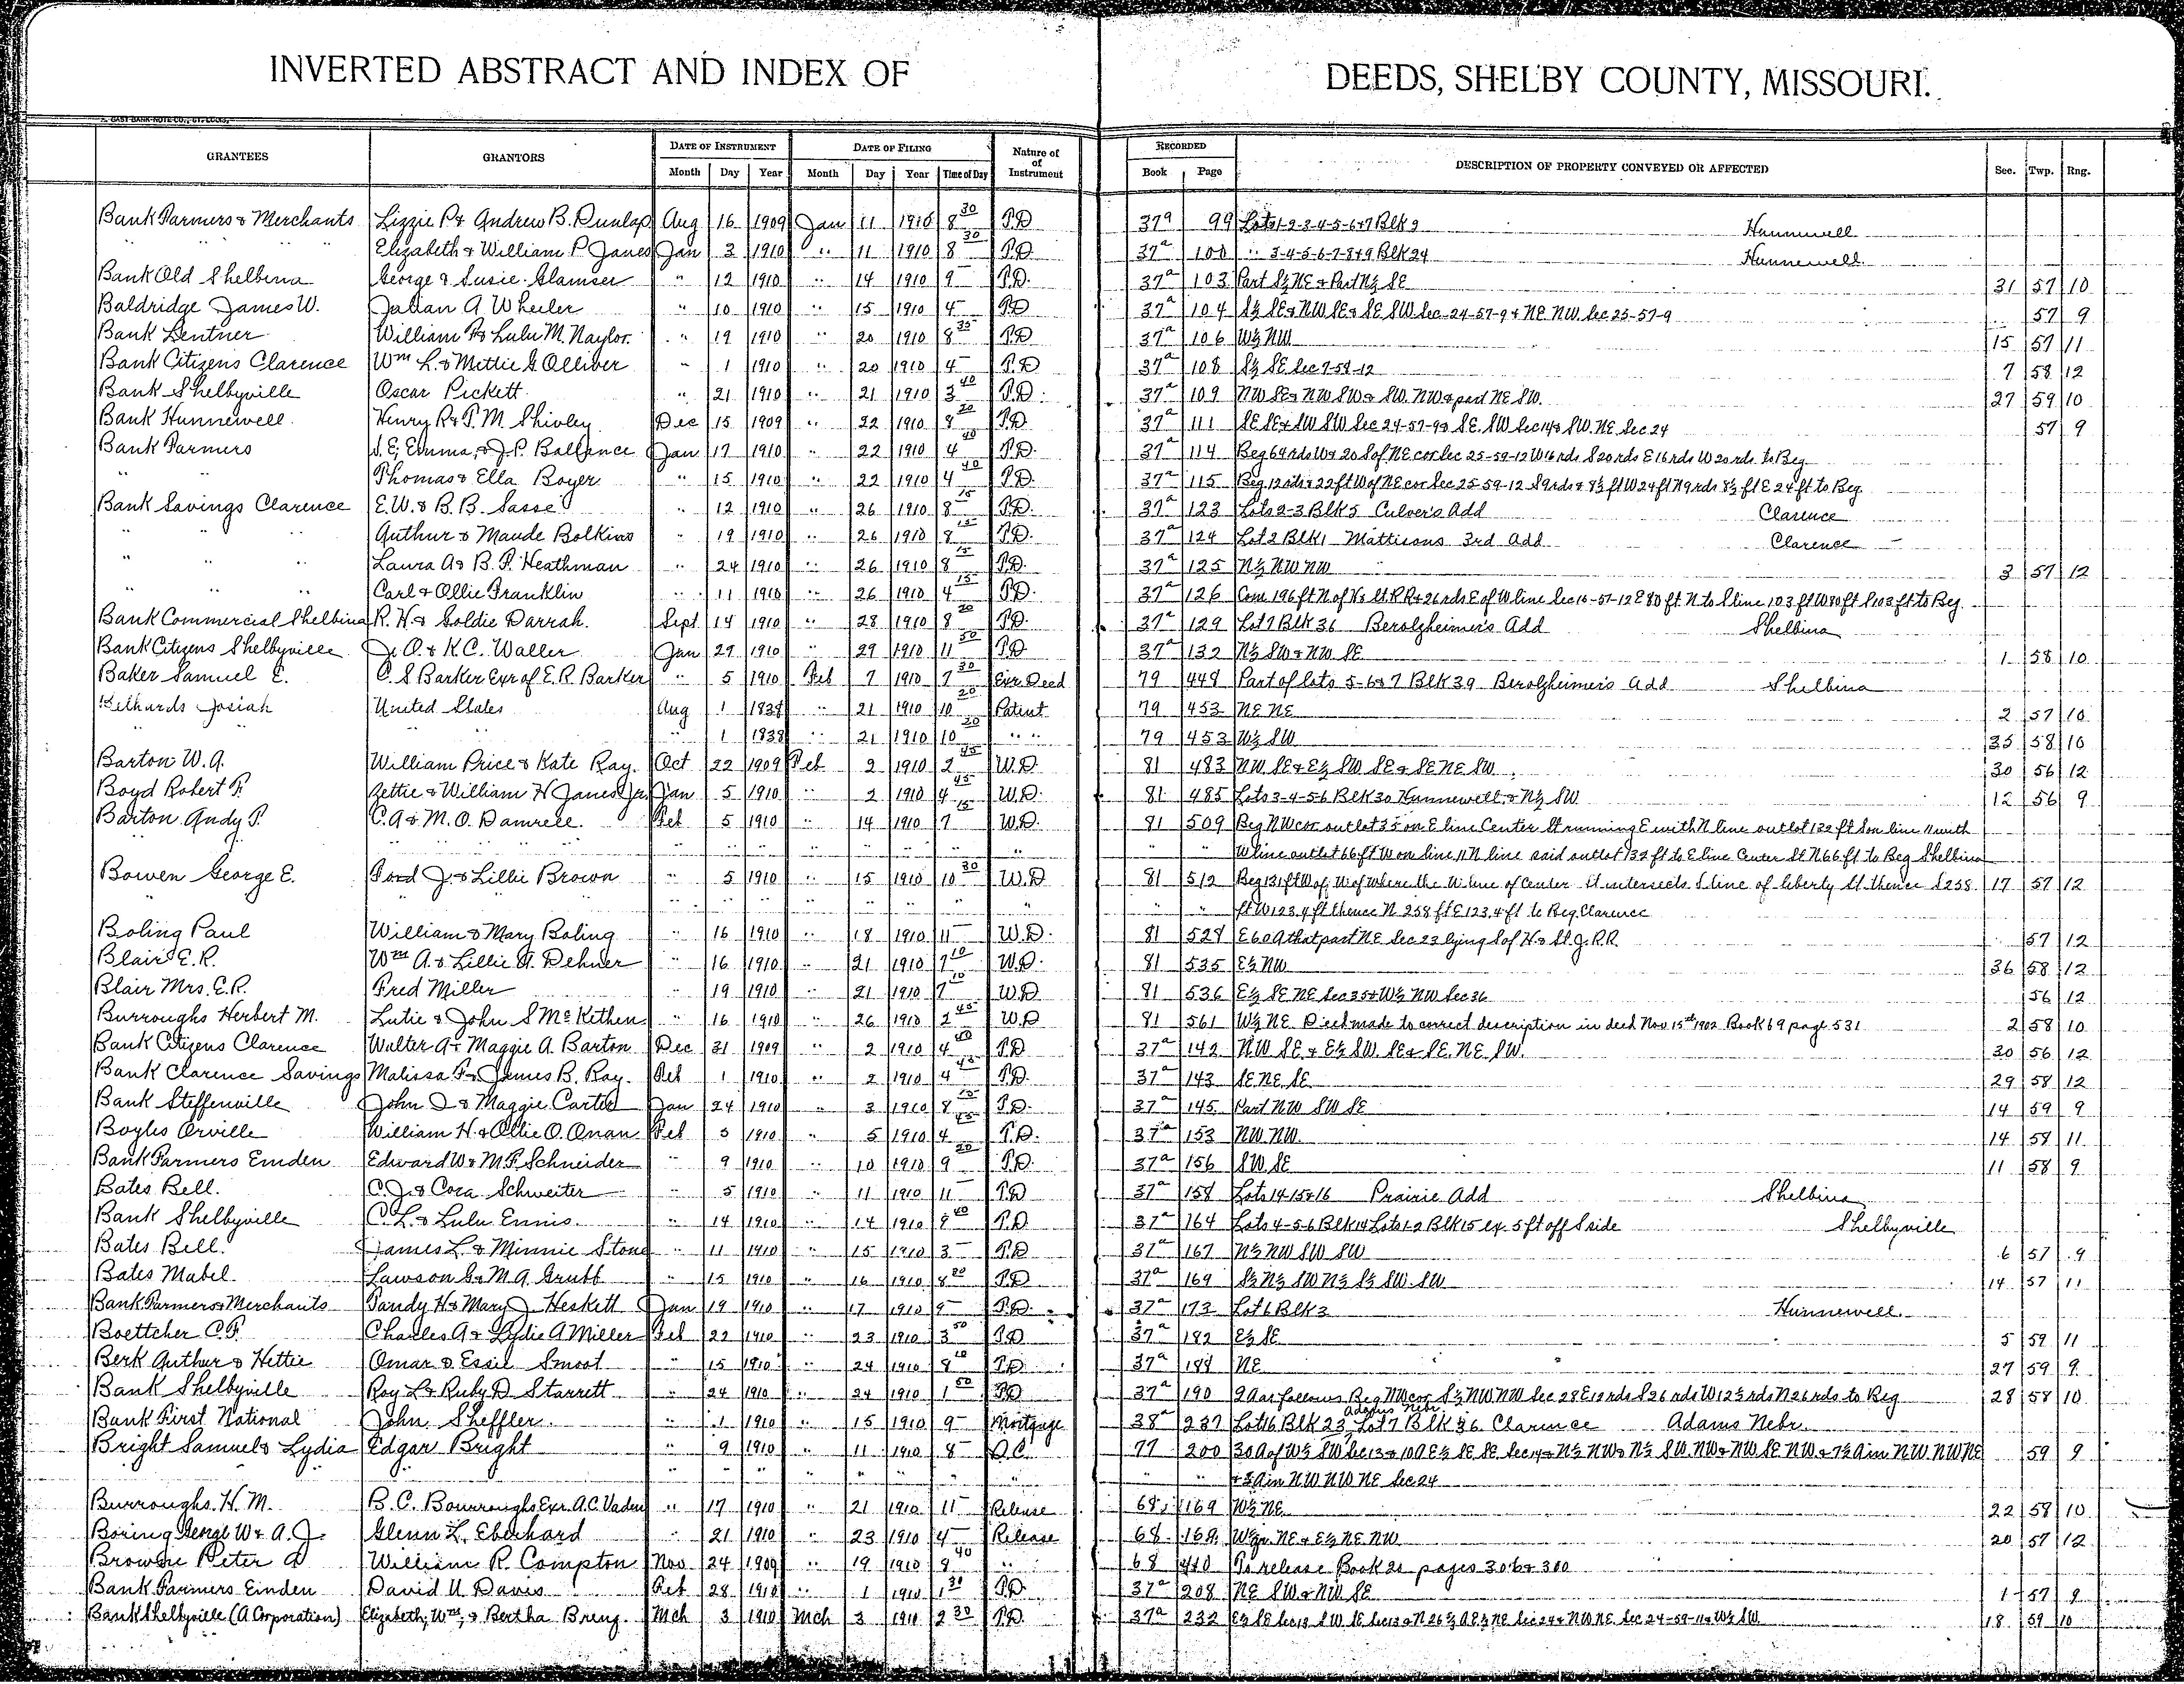 INVERTED ABSTRACT AND INDEX OF DEEDS, SHELBY COUNTY, MISSOURI.
GRANTEES GRANTORS DATE OF INSTRUMENT DATE OF FILING Nature of of Instrument RECORDED DESCRIPTION OF PROPERTY CONVEYED OR AFFECTED Sec. Twp. Rng.
Month Day Year Month Day Year Time of Day Book Page
Bank Farmers & Merchants Lizzie P & Andrew B. Dunlap Aug 16 1909 Jan 11 1910 8 30 T.D 37a 99 Lots 1-2-3-4-5-6&7 Blk 9 Hunnewell
" " " Elizabeth & William P Janes Jan 3 1910 " 11 1910 8 30 T.D. 37a 100 " 3-4-5-6-7-8&9 Blk 24 Hunnewell
Bank Old Shelbina George & Susie Glamser " 12 1910 " 14 1910 9 T.D. 37a 103 Part S½ NE & Part N½ SE 31 57 10
Baldridge James W. Julian A Wheeler " 10 1910 " 15 1910 4 T.D 37a 104 S½ SE & NW SE & SE SW Sec 24-57-9 & NE NW Sec 25-57-9 57 9
Bank Lentner William P & Lulu M. Naylor. " 19 1910 " 20 1910 8 35 T.D 37a 106 W½ NW 15 57 11
Bank Citizens Clarence Wm L. & Mittie G Olliver " 1 1910 " 20 1910 4 T.D 37a 108 S½ SE Sec 7-58-12 7 58 12
Bank Shelbyville Oscar Pickett " 21 1910 " 21 1910 3 40 T.D. 37a 109 NW SE & NW SW & SW. NW & part NE SW. 27 59 10
Bank Hunnewell Henry R & P.M. Shivley Dec 15 1909 " 22 1910 8 20 T.D. 37a 111 SE SE & SW SW Sec 24-57-9 & SE. SW Sec 14 & SW. NE Sec 24 57 9
Bank Farmers S.E, Emma, & J.P. Ballance Jan 17 1910 " 22 1910 4 40 T.D. 37a 114 Beg 64 rds W & 20 S of NE cor Sec 25-59-12 W 16 rds S 20 rds E 16 rds W 20 rds. to Beg
" " Thomas & Ella Boyer " 15 1910 " 22 1910 4 40 T.D. 37a 115 Beg 12 rds & 22 ft W of NE cor Sec 25-59-12 S 9 rds & 8½ ft W 24 ft N 9 rds 8½ ft E 24 ft to Beg.
Bank Savings Clarence E.W. & B.B. Sasse " 12 1910 " 26 1910 8 15 T.D. 37a 123 Lots 2-3 Blk 5 Culver's Add Clarence
" " " Authur & Maude Bolkins " 19 1910 " 26 1910 8 15 T.D. 37a 124 Lot 2 Blk 1 Mattisons 3rd Add Clarence
" " " Laura A & B.F. Heathman " 24 1910 " 26 1910 8 15 T.D. 37a 125 N½ NW NW 3 57 12
" " " Carl & Ollie Franklin " 11 1910 " 26 1910 4 15 T.D. 37a 126 Com 196 ft N of H & St RR & 26 rds E of W line Sec 16-57-12 E 80 ft N to S line 103 ft W 80 ft S 103 ft to Beg.
Bank Commercial Shelbina R. H. & Goldie Darrah. Sept 14 1910 " 28 1910 8 20 T.D. 37a 129 Lot 7 Blk 36 Berolzheimer's Add Shelbina
Bank Citizens Shelbyville J. O. & K.C. Waller Jan 29 1910 " 29 1910 11 50 T.D 37a 132 N½ SW & NW SE 1 58 10
Baker Samuel E. C. S Barker Exr of E. R Barker " 5 1910 Feb 7 1910 7 30 Exr Deed 79 448 Part of lots 5-6&7 Blk 39 Berolzheimer's Add Shelbina
Josiah United States Aug 1 1838 " 21 1910 10 20 Patent 79 453 NE NE 2 57 10
" " 1 1838 " 21 1910 10 20 " " 79 453 W½ SW 35 58 10
Barton W. A. William Price & Kate Ray. Oct 22 1909 Feb 2 1910 2 45 W.D. 81 483 NW SE & E½ SW SE & SE NE SW 30 56 12
Boyd Robert F. Bettie & William H Janes Jr. Jan 5 1910 " 2 1910 4 45 W.D. 81 485 Lots 3-4-5-6 Blk 30 Hunnewell & N½ SW 12 56 9
Barton Andy P. C.A & M. O. Damrell. Feb 5 1910 " 14 1910 7 15 W.D. 81 509 Beg NW cor outlot 35 on E line Center St running E with N line outlot 132 ft S on line 11 with
" " " " " " " " W line outlot 66 ft W on line 11 N line said outlot 132 ft to E line Center St N 66 ft to Beg Shelbina
Bowen George E. Ford J. & Lillie Brown " 5 1910 " 15 1910 10 30 W.D 81 512 Beg 131 ft W of W of where the W line of Center St intersects S line of liberty St thence S 258 17 57 12
" " " " " " " " ft W 123.4 ft thence N 258 ft E 123.4 ft to Beg. Clarence
Boling Paul William & Mary Boling " 16 1910 " 18 1910 11 W.D. 81 528 E 60 A that part NE Sec 23 lying S of H & St. J. R.R. 57 12
Blair E.R. Wm A. & Lillie A. Dehner " 16 1910 " 21 1910 7 10 W.D. 81 535 E½ NW 36 58 12
Blair Mrs. E.R. Fred Miller " 19 1910 " 21 1910 7 10 W.D 81 536 E½ SE NE Sec 35 & W½ NW Sec 36 56 12
Burroughs Herbert M. Lutie & John S McKethen " 16 1910 " 26 1910 2 45 W.D 81 561 W½ NE. Deed made to correct description in deed Nov 15th 1902 Book 69 page 531 2 58 10
Bank Citizens Clarence Walter A & Maggie A. Barton Dec 31 1909 " 2 1910 4 40 T.D 37a 142 NW SE & E½ SW. SE & SE. NE. SW. 30 56 12
Bank Clarence Savings Malissa F & James B. Ray. Feb 1 1910 " 2 1910 4 45 T.D. 37a 143 SE NE SE 29 58 12
Bank Steffenville John I & Maggie Carter Jan 24 1910 " 3 1910 8 15 T.D. 37a 145 Part NW SW SE 14 59 9
Boyles Orville William H. & Ollie O. Onan Feb 5 1910 " 5 1910 4 45 T.D. 37a 153 NW NW. 14 58 11
Bank Farmers Emden Edward W & M.F. Schneider " 9 1910 " 10 1910 9 20 T.D. 37a 156 SW SE 11 58 9
Bates Bell. C. J. & Cora Schweiter " 5 1910 " 11 1910 11 T.D 37a 158 Lots 14-15&16 Prairie Add Shelbina
Bank Shelbyville C. L. & Lulu Ennis. " 14 1910 " 14 1910 9 40 T.D 37a 164 Lots 4-5-6 Blk 14 Lots 1-2 Blk 15 ex. 5 ft off S side Shelbyville
Bates Bell. James L. & Minnie Stone " 11 1910 " 15 1910 3 T.D 37a 167 N½ NW SW SW 6 57 9
Bates Mabel. Lawson G & M.A. Grubb " 15 1910 " 16 1910 8 20 T.D 37a 169 S½ N½ SW N½ S½ SW. SW 14 57 11
Bank Farmers & Merchants Tandy H & Mary J. Heskett Jan 19 1910 " 17 1910 9 T.D. 37a 173 Lot 6 Blk 3 Hunnewell.
Boettcher C.F. Charles A & Lydie A Miller Feb 22 1910 " 23 1910 3 50 T.D 37a 182 E½ SE 5 59 11
Berk Authur & Hettie Omar & Essil Smoot " 15 1910 " 24 1910 8 10 T.D. 37a 188 NE 27 59 9
Bank Shelbyville Roy L & Ruby D Starrett " 24 1910 " 24 1910 1 50 T.D 37a 190 2A as follows Beg NW cor S½ NW NW Sec 28 E 12 rds S 26 rds W 12½ rds N 26 rds to Beg 28 58 10
Adams Nebr.
Bank First National John Sheffler. " 1 1910 " 15 1910 9 Mortgage 38a 237 Lot 16 Blk 23 Lot 7 Blk 36 Clarence Adams Nebr.
Bright Samuel & Lydia Edgar Bright " 9 1910 " 11 1910 8 Q.C. 77 200 30 A of W½ SW Sec 13 & 10 A E½ SE SE Sec 14 & N½ NW & N½ SW. NW & NW SE NW & 7½ A in NW. NW NE 59 9
" " " " " " " " & 5 A in NW NW NE Sec 24
Burroughs. H. M. B. C. Bourroughs Exr. A.C. Vaden " 17 1910 " 21 1910 11 Release 68 169 W½ NE 22 58 10
Boring George W & A. J. Glenn L. Eberhard " 21 1910 " 23 1910 4 Release 68 169 NE & E½ NE. NW 20 57 12
Browne Peter William R. Compton Nov 24 1909 " 19 1910 9 40 " 68 410 To release Book 21 pages 306 & 300
Bank Farmers Emden David U Davis Feb 28 1910 " 1 1910 1 30 T.D. 37a 208 NE SW & NW SE 1 57 9
Bank Shelbyville (A Corporation) Elizabeth, Wm, & Bertha Breng. Mch 3 1910 Mch 3 1910 2 30 T.D. 37a 232 E½ SE Sec 13 SW SE Sec 13 & N 26½ A E½ NE Sec 24 & NW NE Sec 24-59-11 & W½ SW 18 59 10